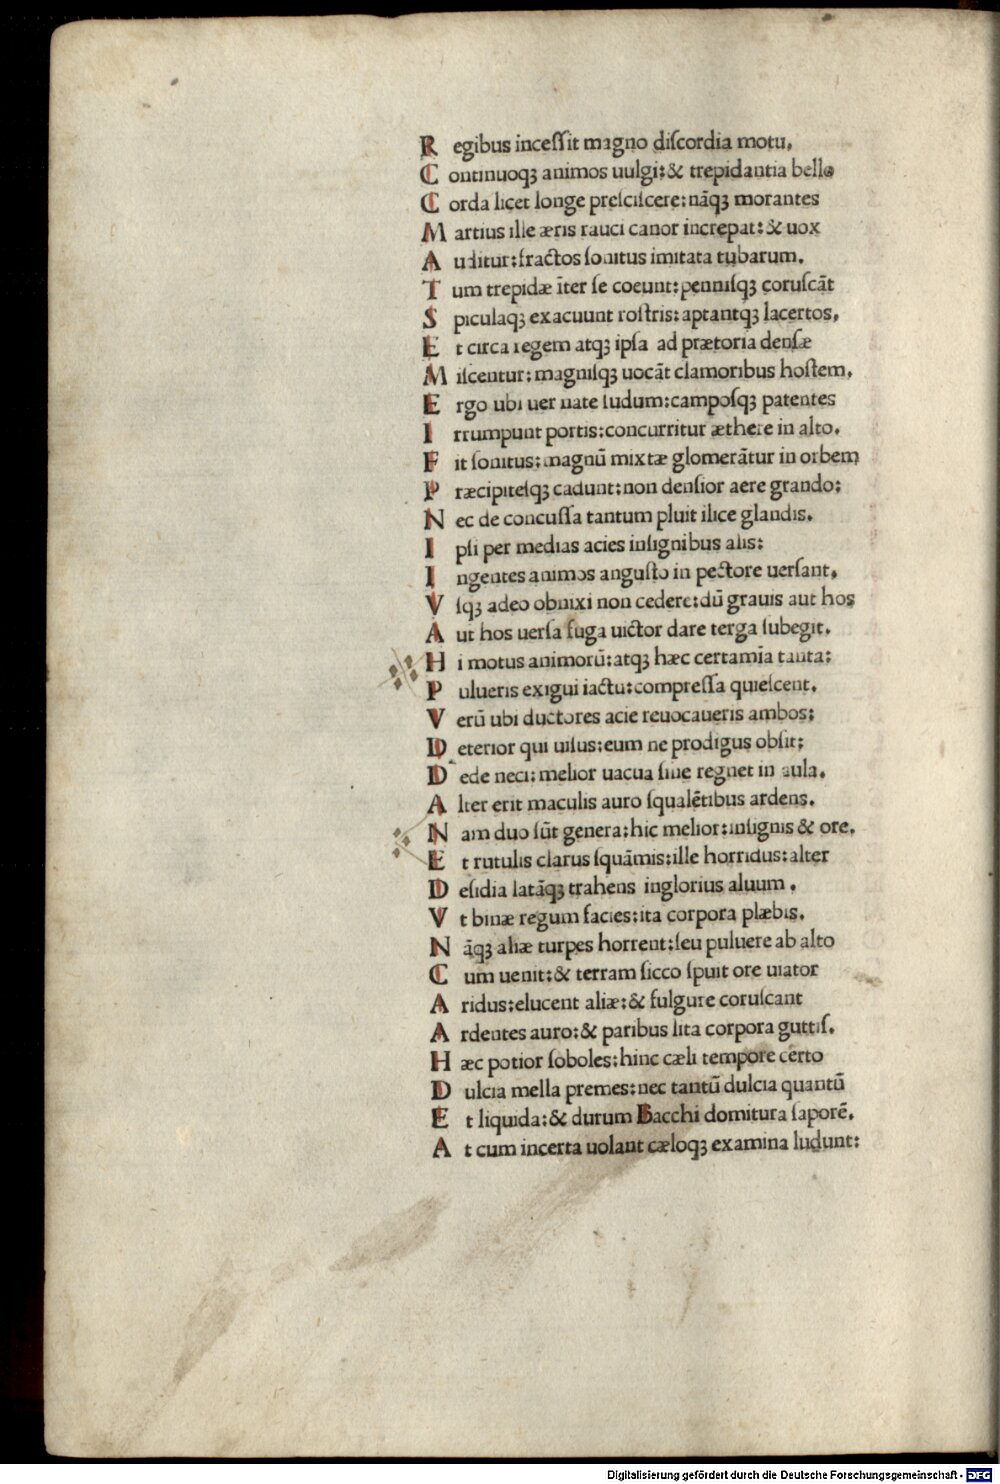 Regibus inceſſit magno diſcordia motu.
Continuoqꝫ animos uulgi:& trepidantia bello
Corda licet longe preſciſcere:nāqꝫ morantes
Martius ille æris rauci canor increpat:& uox
Auditur:fractos ſonitus imitata tubarum.
Tum trepidæ īter ſe coeunt:penniſqꝫ coruſcāt
Spiculaqꝫ exacuunt roſtris:aptantqꝫ lacertos.
Et circa regem atqꝫ ipſa ad prætoria denſæ
Miſcentur:magniſqꝫ uocāt clamoribus hoſtem.
Ergo ubi uer nate ſudum:campoſqꝫ patentes
Irrumpunt portis:concurritur æthere in alto.
Fit ſonitus:magnū mixtæ glomerātur in orbem
Præcipiteſqꝫ cadunt:non denſior aere grando:
Nec de concuſſa tantum pluit ilice glandis.
Ipſi per medias acies inſignibus alis:
Ingentes animos anguſto in pectore uerſant.
Vſqꝫ adeo obnixi non cedere:dū grauis aut hos
Aut hos uerſa fuga uictor dare terga ſubegit.
Hi motus animorū:atqꝫ hæc certamīa tanta:
Pulueris exigui iactu:compreſſa quieſcent.
Verū ubi ductores acie reuocaueris ambos:
Deterior qui uiſus:eum ne prodigus obſit:
Dede neci:melior uacua ſine regnet in aula.
Alter erit maculis auro ſqualētibus ardens.
Nam duo ſūt genera:hic melior:inſignis & ore.
Et rutulis clarus ſquāmis:ille horridus:alter
Deſidia latāqꝫ trahens inglorius aluum.
Vt binæ regum facies:ita corpora plæbis.
Nāqꝫ aliæ turpes horrent:ſeu puluere ab alto
Cum uenit:& terram ſicco ſpuit ore uiator
Aridus:elucent aliæ:& fulgure coruſcant
Ardentes auro:& paribus lita corpora guttiſ.
Hæc potior ſoboles:hinc cæli tempore certo
Dulcia mella premes:nec tantū dulcia quantū
Et liquida:& durum Bacchi domitura ſaporē.
At cum incerta uolant cæloqꝫ examina ludunt:
Digitalisierung gefördert durch die Deutsche Forschungsgemeinschaft - DFG